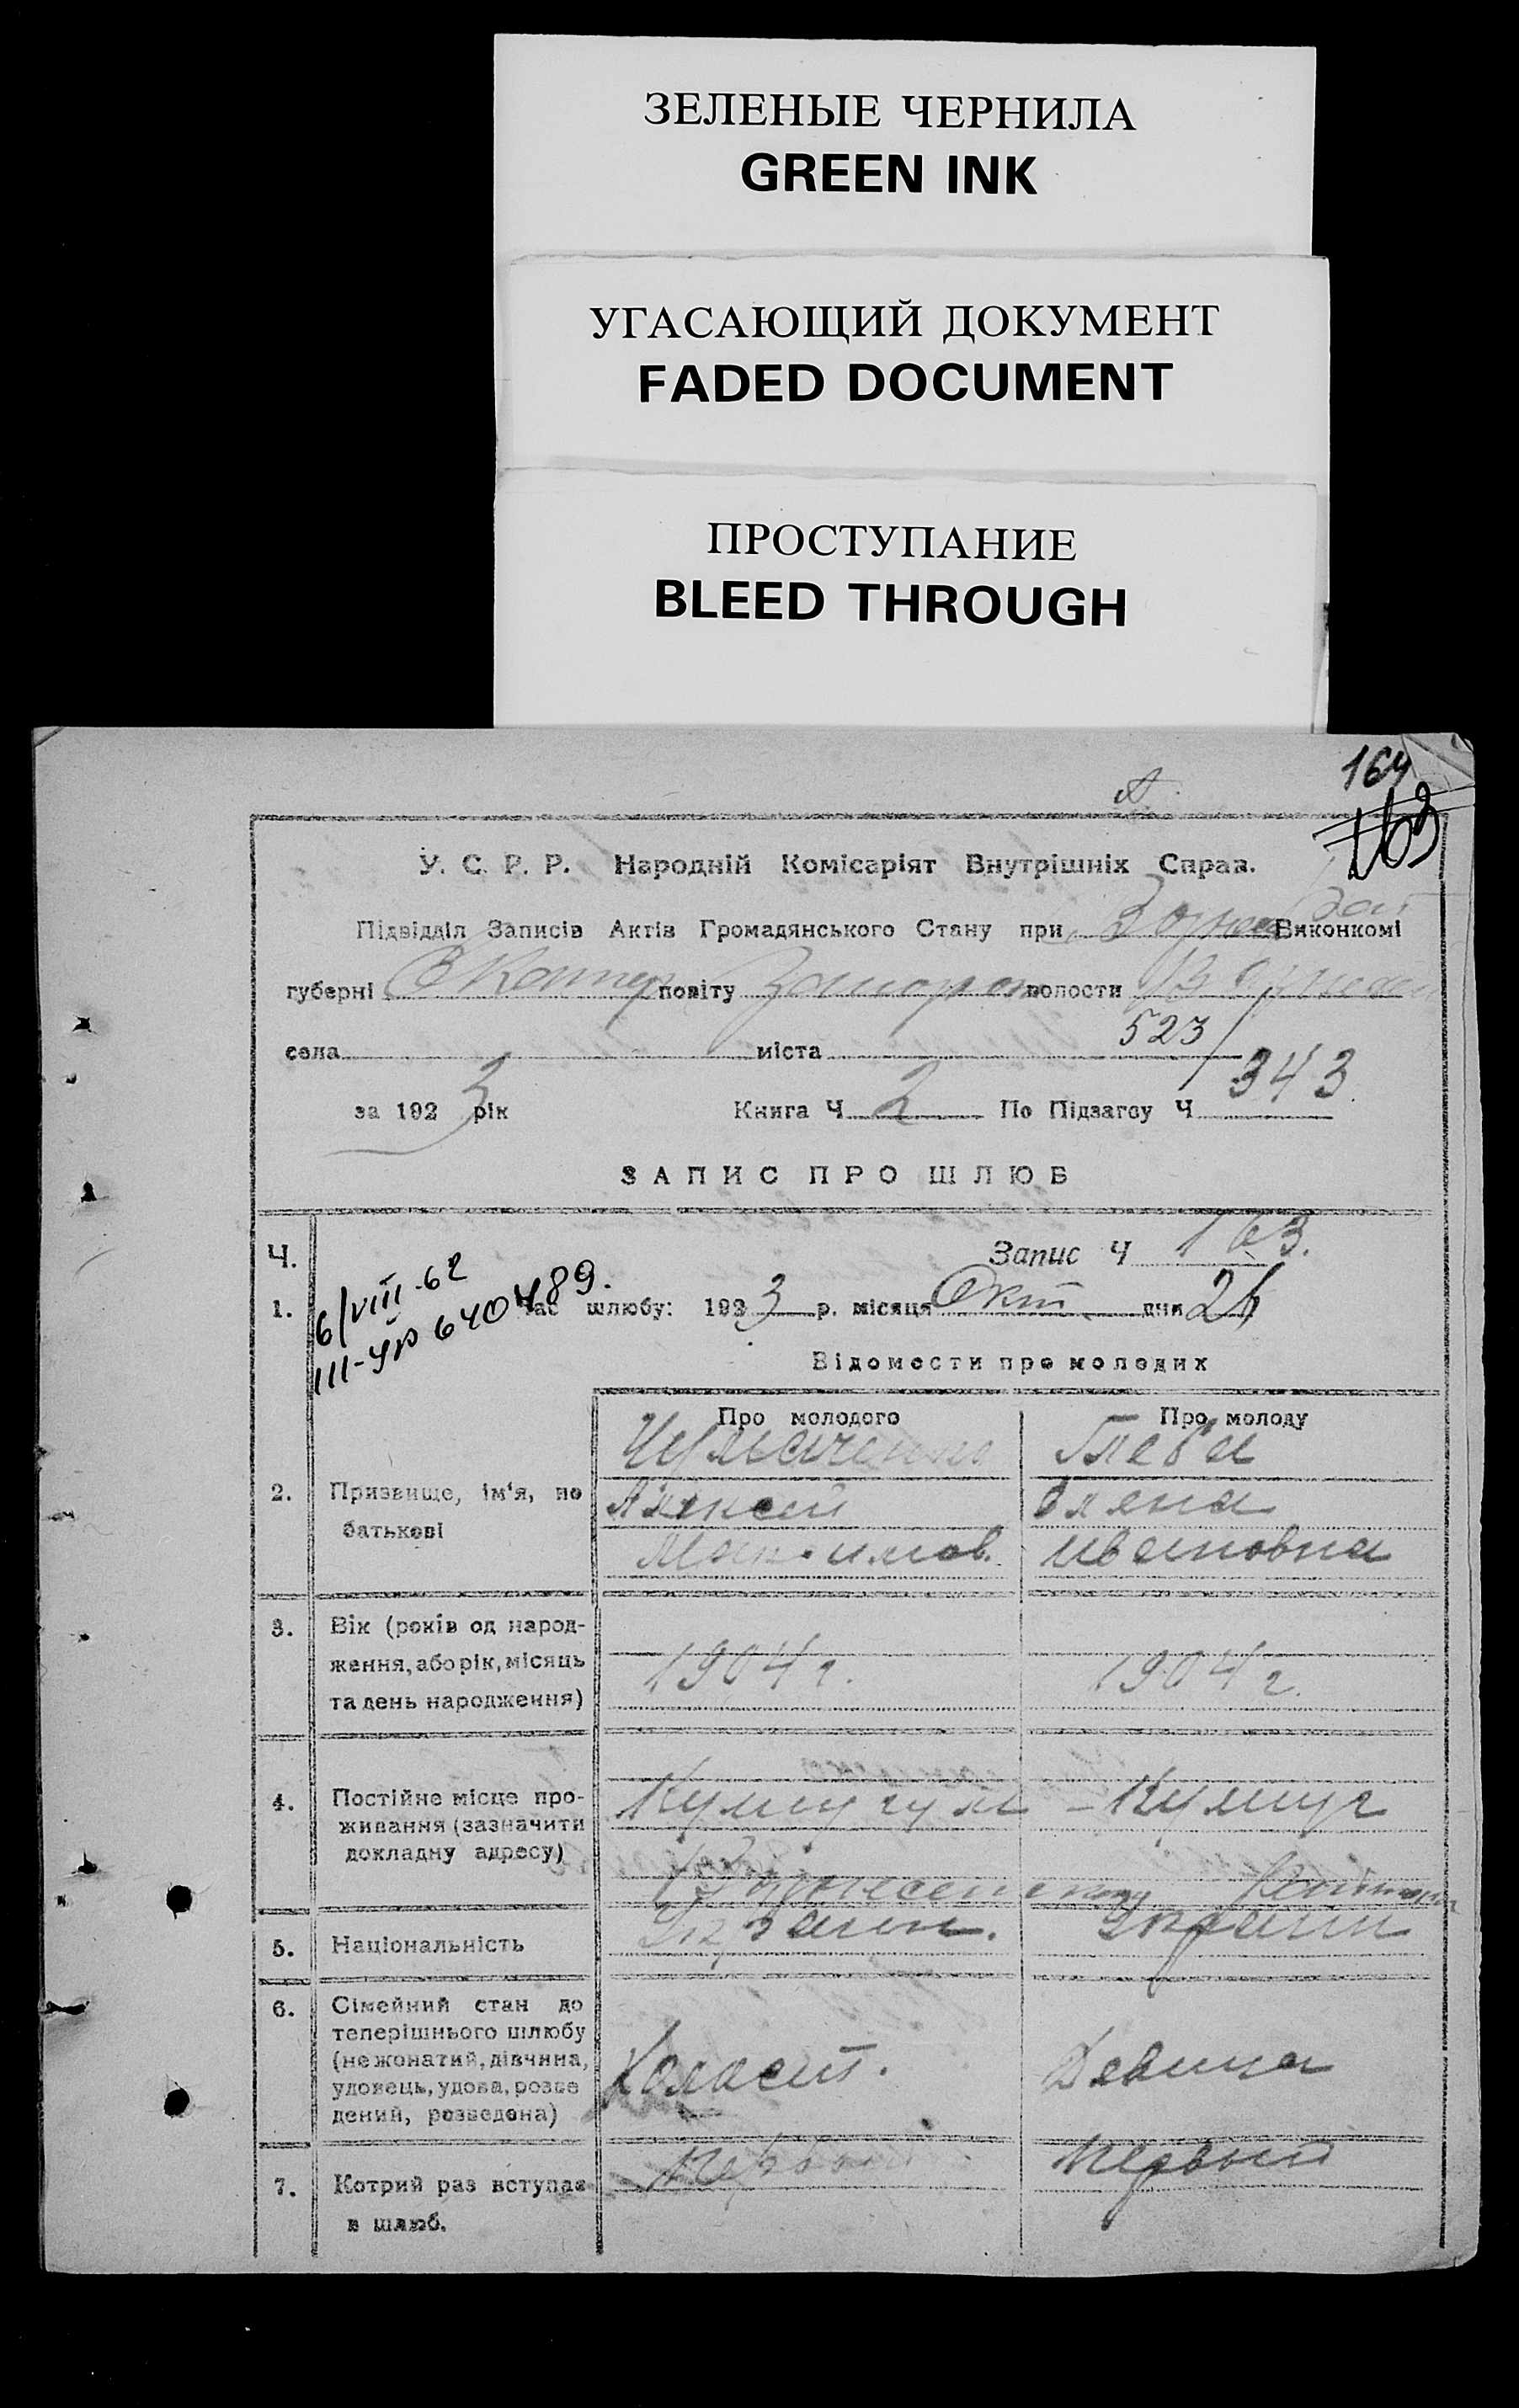 ЗЕЛЕНЫЕ ЧЕРНИЛА
GREEN INK
УГАСАЮЩИЙ ДОКУМЕНТ
FADED DOCUMENT
ПРОСТУПАНИЕ
BLEED THROUGH
164
163
У. С. Р. Р. Народній Комісаріят Внутрішніх Справ.
Підвідділ Записів Актів Громадянського Стану при Виконкомі
губерні повіту волости
села міста 523/
343
за 1923 рік Книга Ч 2 По Підзагсу Ч
ЗАПИС ПРО ШЛЮБ
Ч. Запис Ч 163.
6/VIII-62
1. Час шлюбу: 1923 р. місяця Окт дня
III-УР 640489.
Відомости про молодих
Про молодого Про молоду
Глеба
2. Призвище, ім'я, по Алексей Олена
батькові Максимов. Ивановна
3. Вік (років од народ-
ження, або рік, місяць 1904 г. 1904 г.
та день народження)
4. Постійне місце про- Кушугум - Кушуг
живання (зазначити
докладну адресу)
5. Національність Украин
6. Сімейний стан до
теперішнього шлюбу
(не жонатий, дівчина, Холост. Девица
удовець, удова, розве
дений, розведена)
Первый Первый
7. Котрий раз вступає
в шлюб.